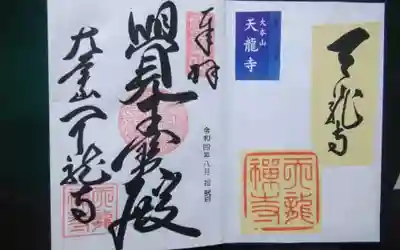 天龍寺
大本山
天龍寺
天龍
禪寺
奉拝
令和四年八月
覺王寶殿
大本山天龍寺